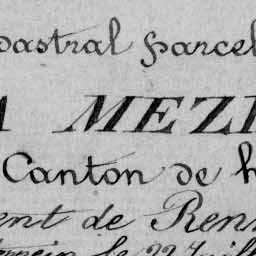 dastral parcel
A MEZI
Canton de h
ent de Renn
terrein le 22 Juill